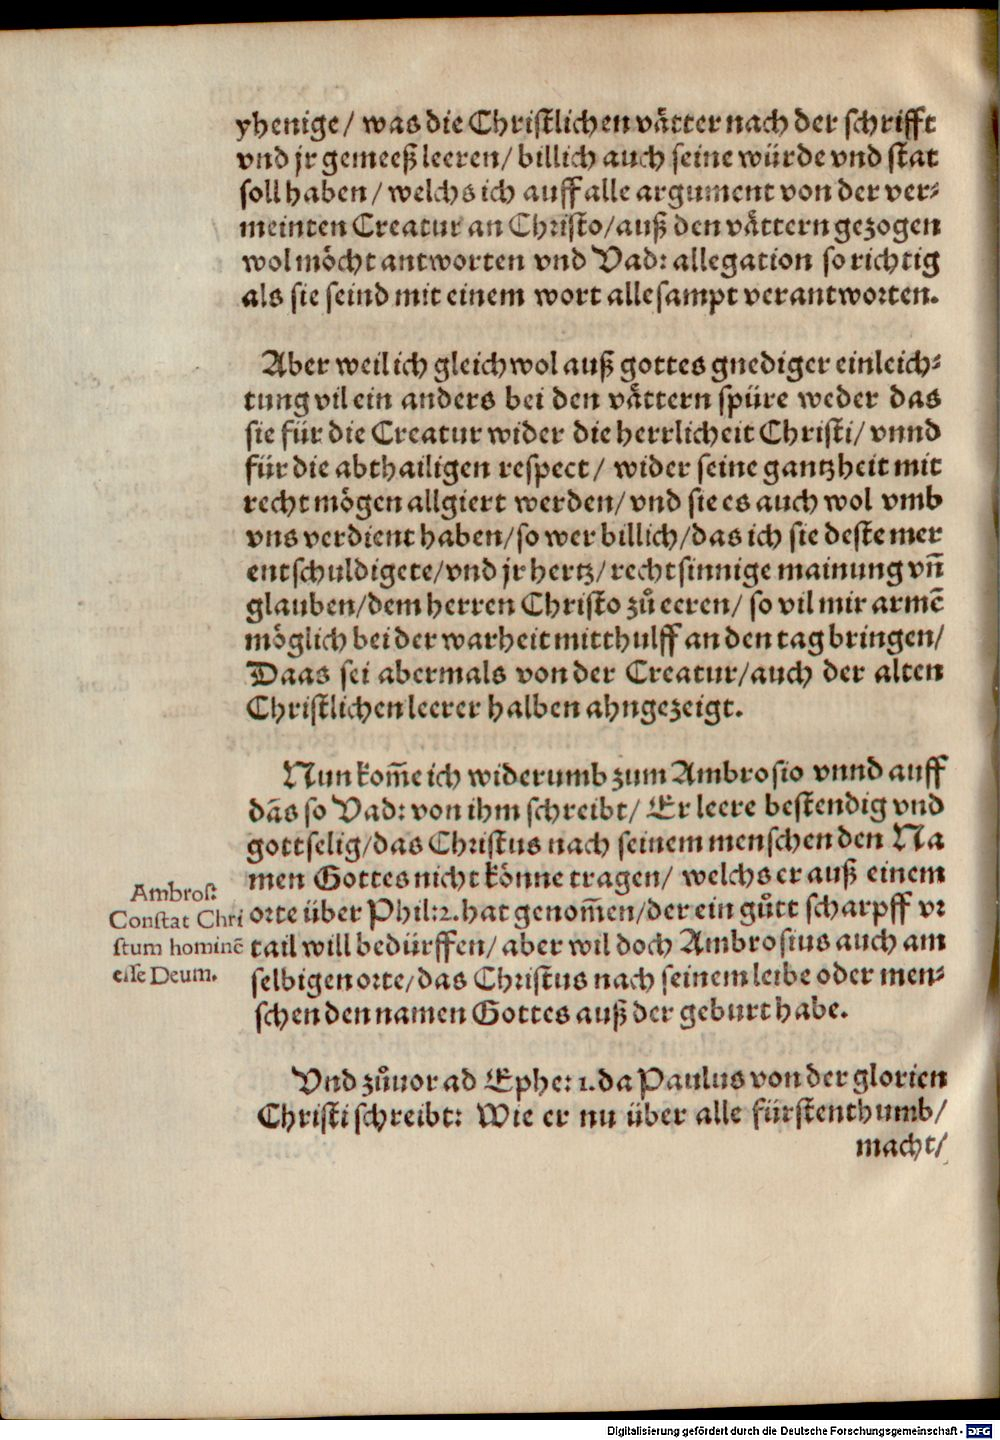 yhenige/ was die Christlichen vätter nach der schrifft
vnd jr gemeeß leeren/ billich auch seine würde vnd stat
soll haben/ welchs ich auff alle argument von der ver⸗
meinten Creatur an Christo/ auß den vättern gezogen
wol möcht antworten vnd Vad: allegation so richtig
als sie seind mit einem wort alle sampt verantworten.
Aber weil ich gleichwol auß gottes gnediger einleich⸗
tung vil ein anders bei den vättern spüre weder das
sie für die Creatur wider die herrlicheit Christi/ vnnd
für die abthailigen respect/ wider seine gantzheit mit
recht mögen allgiert werden/ vnd sie es auch wol vmb
vns verdient haben/ so wer billich/ das ich sie deste mer
entschuldigete/ vnd jr hertz/ rechtsinnige mainung vñ
glauben/ dem herren Christo zů eeren/ so vil mir armē
möglich bei der warheit mitthulff an den tag bringen/
Daas sei abermals von der Creatur/ auch der alten
Christlichen leerer halben ahngezeigt.
Nun kom̃e ich widerumb zum Ambrosio vnnd auff
dãs so Vad: von ihm schreibt/ Er leere bestendig vnd
gottselig/ das Christus nach seinem menschen den Na
men Gottes nicht könne tragen/ welchs er auß einem
orte über Phil: 2. hat genom̃en/ der ein gůtt scharpff vr
tail will bedürffen/ aber wil doch Ambrosius auch am
selbigen orte/ das Christus nach seinem leibe oder men⸗
schen den namen Gottes auß der geburt habe.
Ambros:
Constat Chri
stum hominē
esse Deum.
Vnd zůuor ad Ephe: 1. da Paulus von der glorien
Christi schreibt: Wie er nu über alle fürstenthumb/
macht/
Digitalisierung gefördert durch die Deutsche Forschungsgemeinschaft - DFG